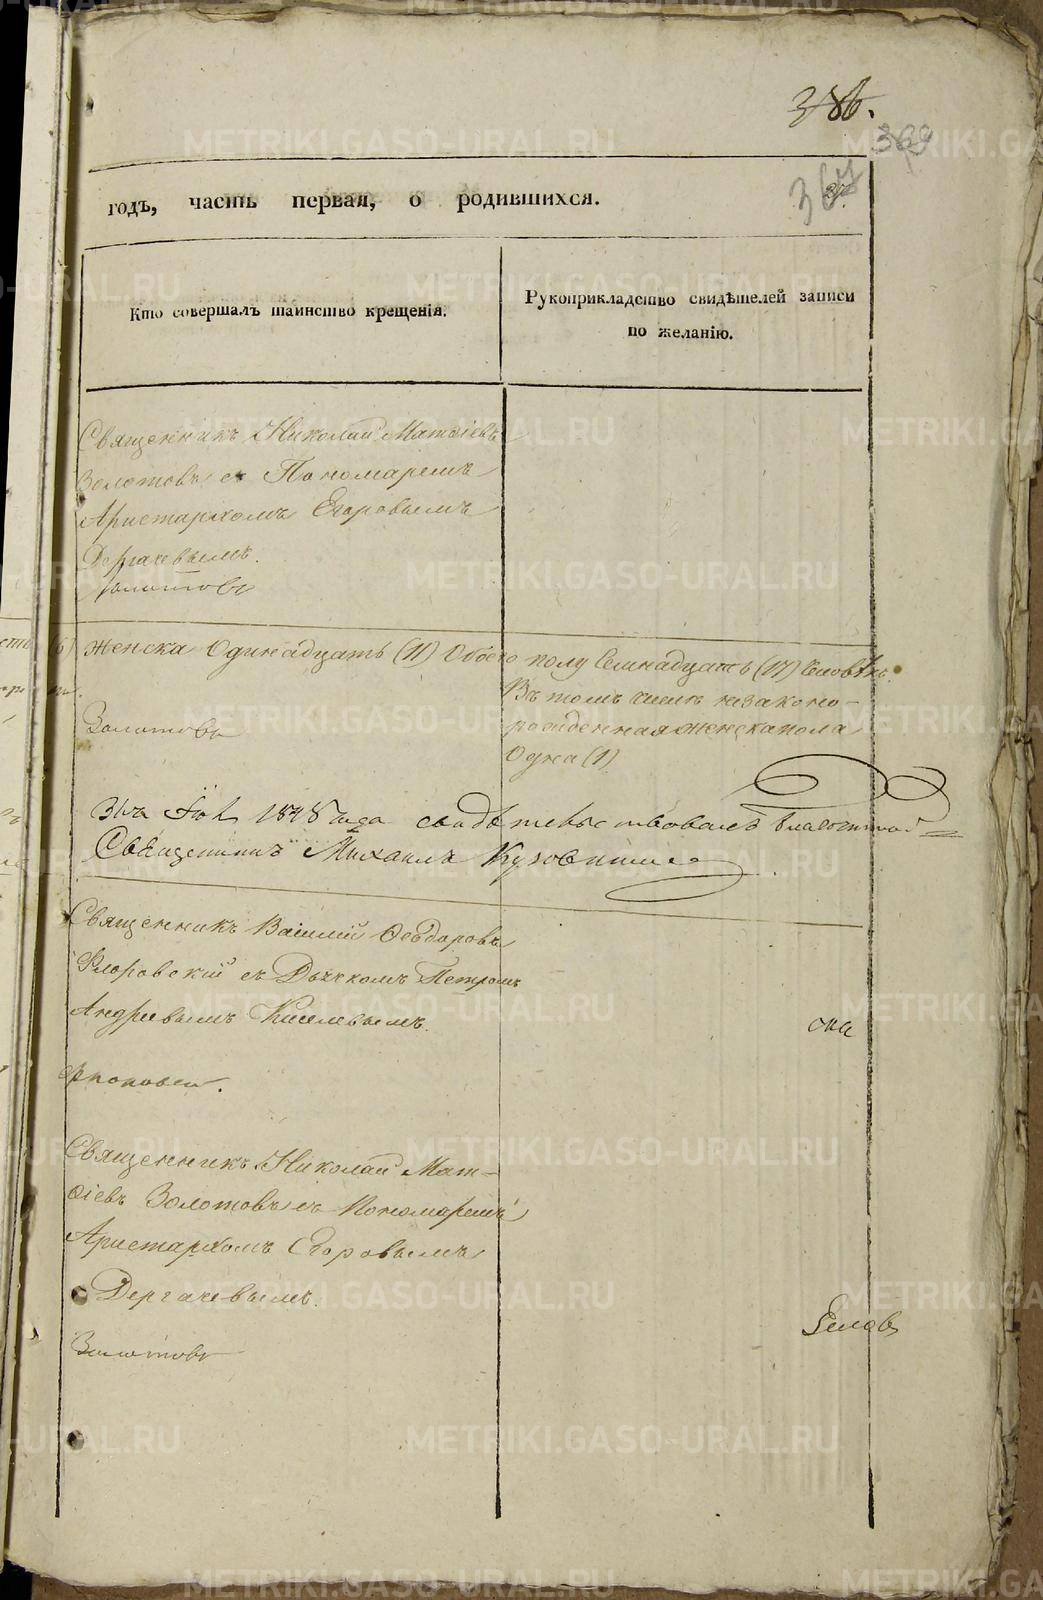 386.
369
367
годъ, часть первая, о родившихся.
Кто совершалъ таинство крещенія.
Рукоприкладство свидѣтелей записи
по желанію.
Священникъ Николай Матѳіевъ
Золотовъ съ Пономаремъ
Аристархомъ Егоровымъ
Дергачевымъ.
Золотовъ
женска Одинадцать (11) Обоего полу Семнадцать (17) Человѣкъ.
Въ томъ числѣ незаконо-
рожденная женска пола
Одна (1)
Золотовъ
1848 года свидѣтельствовалъ Благочинной
Священникъ Михаилъ
Священникъ Василій Ѳеодоровъ
Флоровскій съ Дьячкомъ Петромъ
Андреевымъ Киселевымъ.
Священникъ Николай Мат-
ѳіевъ Золотовъ съ Пономаремъ
Аристархомъ Егоровымъ
Дергачевымъ.
Золотовъ
METRIKI.GASO-URAL.RU